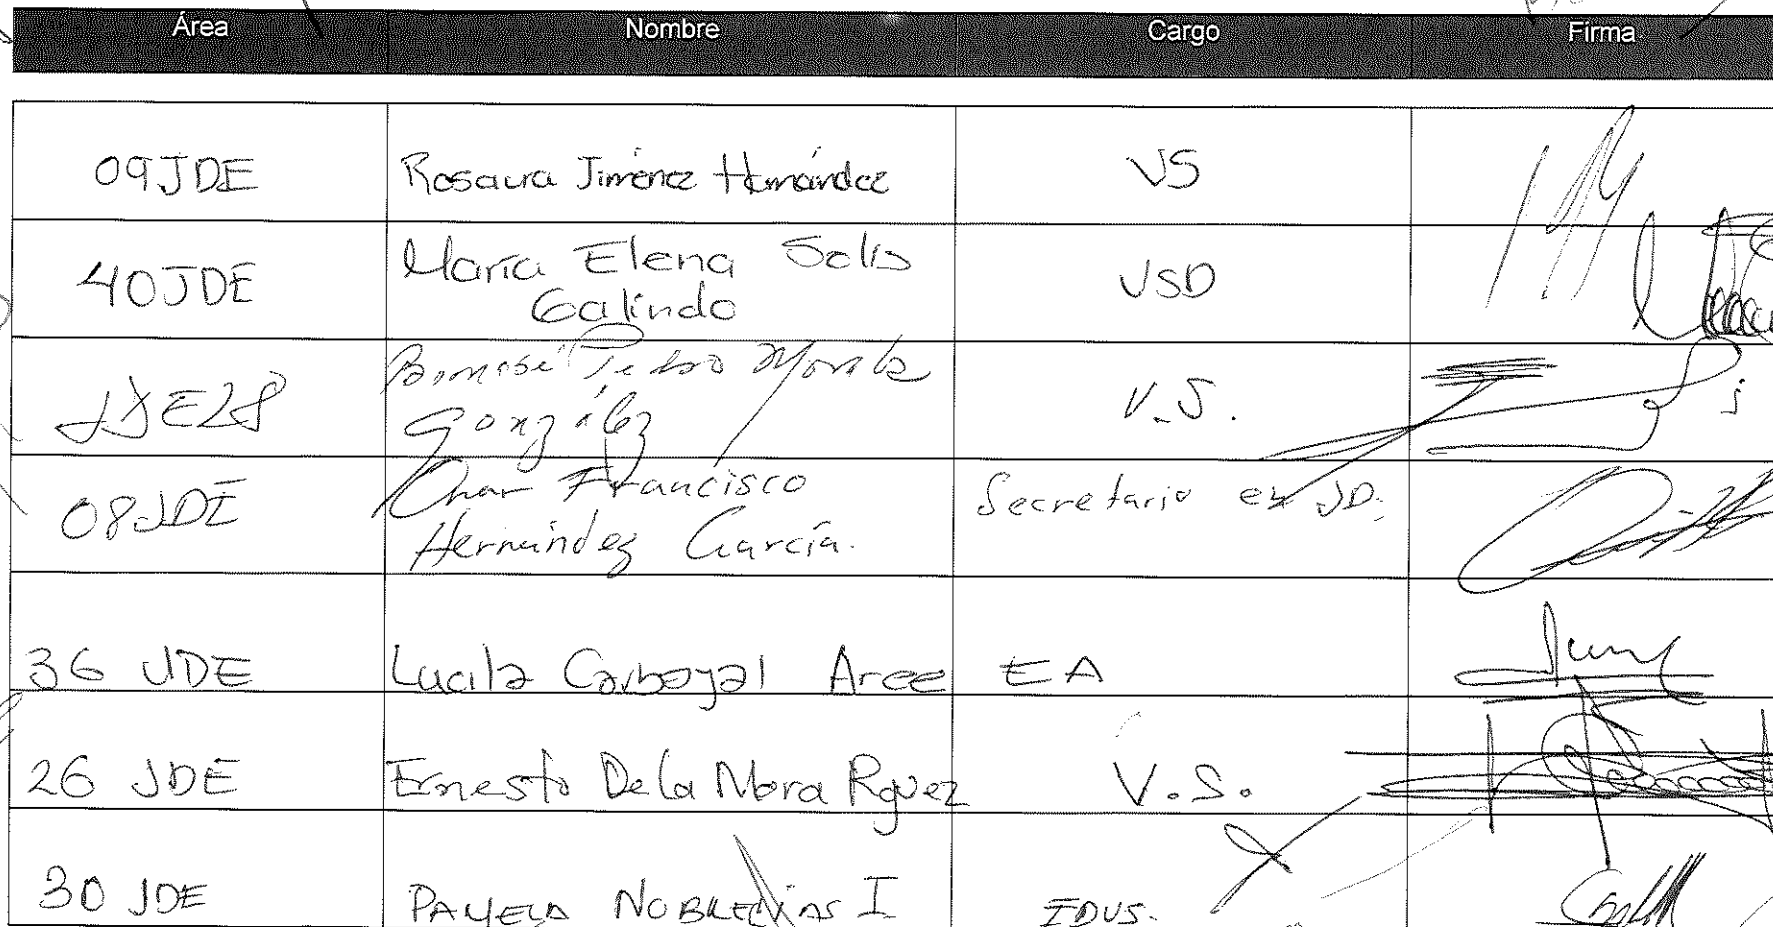 Área Nombre Cargo Firma
09JDE Rosaura Jiménez Hernández VS
40JDE María Elena Solis
Galindo VSD
JDE28 Pedro
González V.S.
08JDE Omar Francisco
Hernández García. Secretario en JD.
36 JDE Lucila Carbajal Arce EA
26 JDE Ernesto De la Mora Rguez V.S.
30 JDE PAMELA I